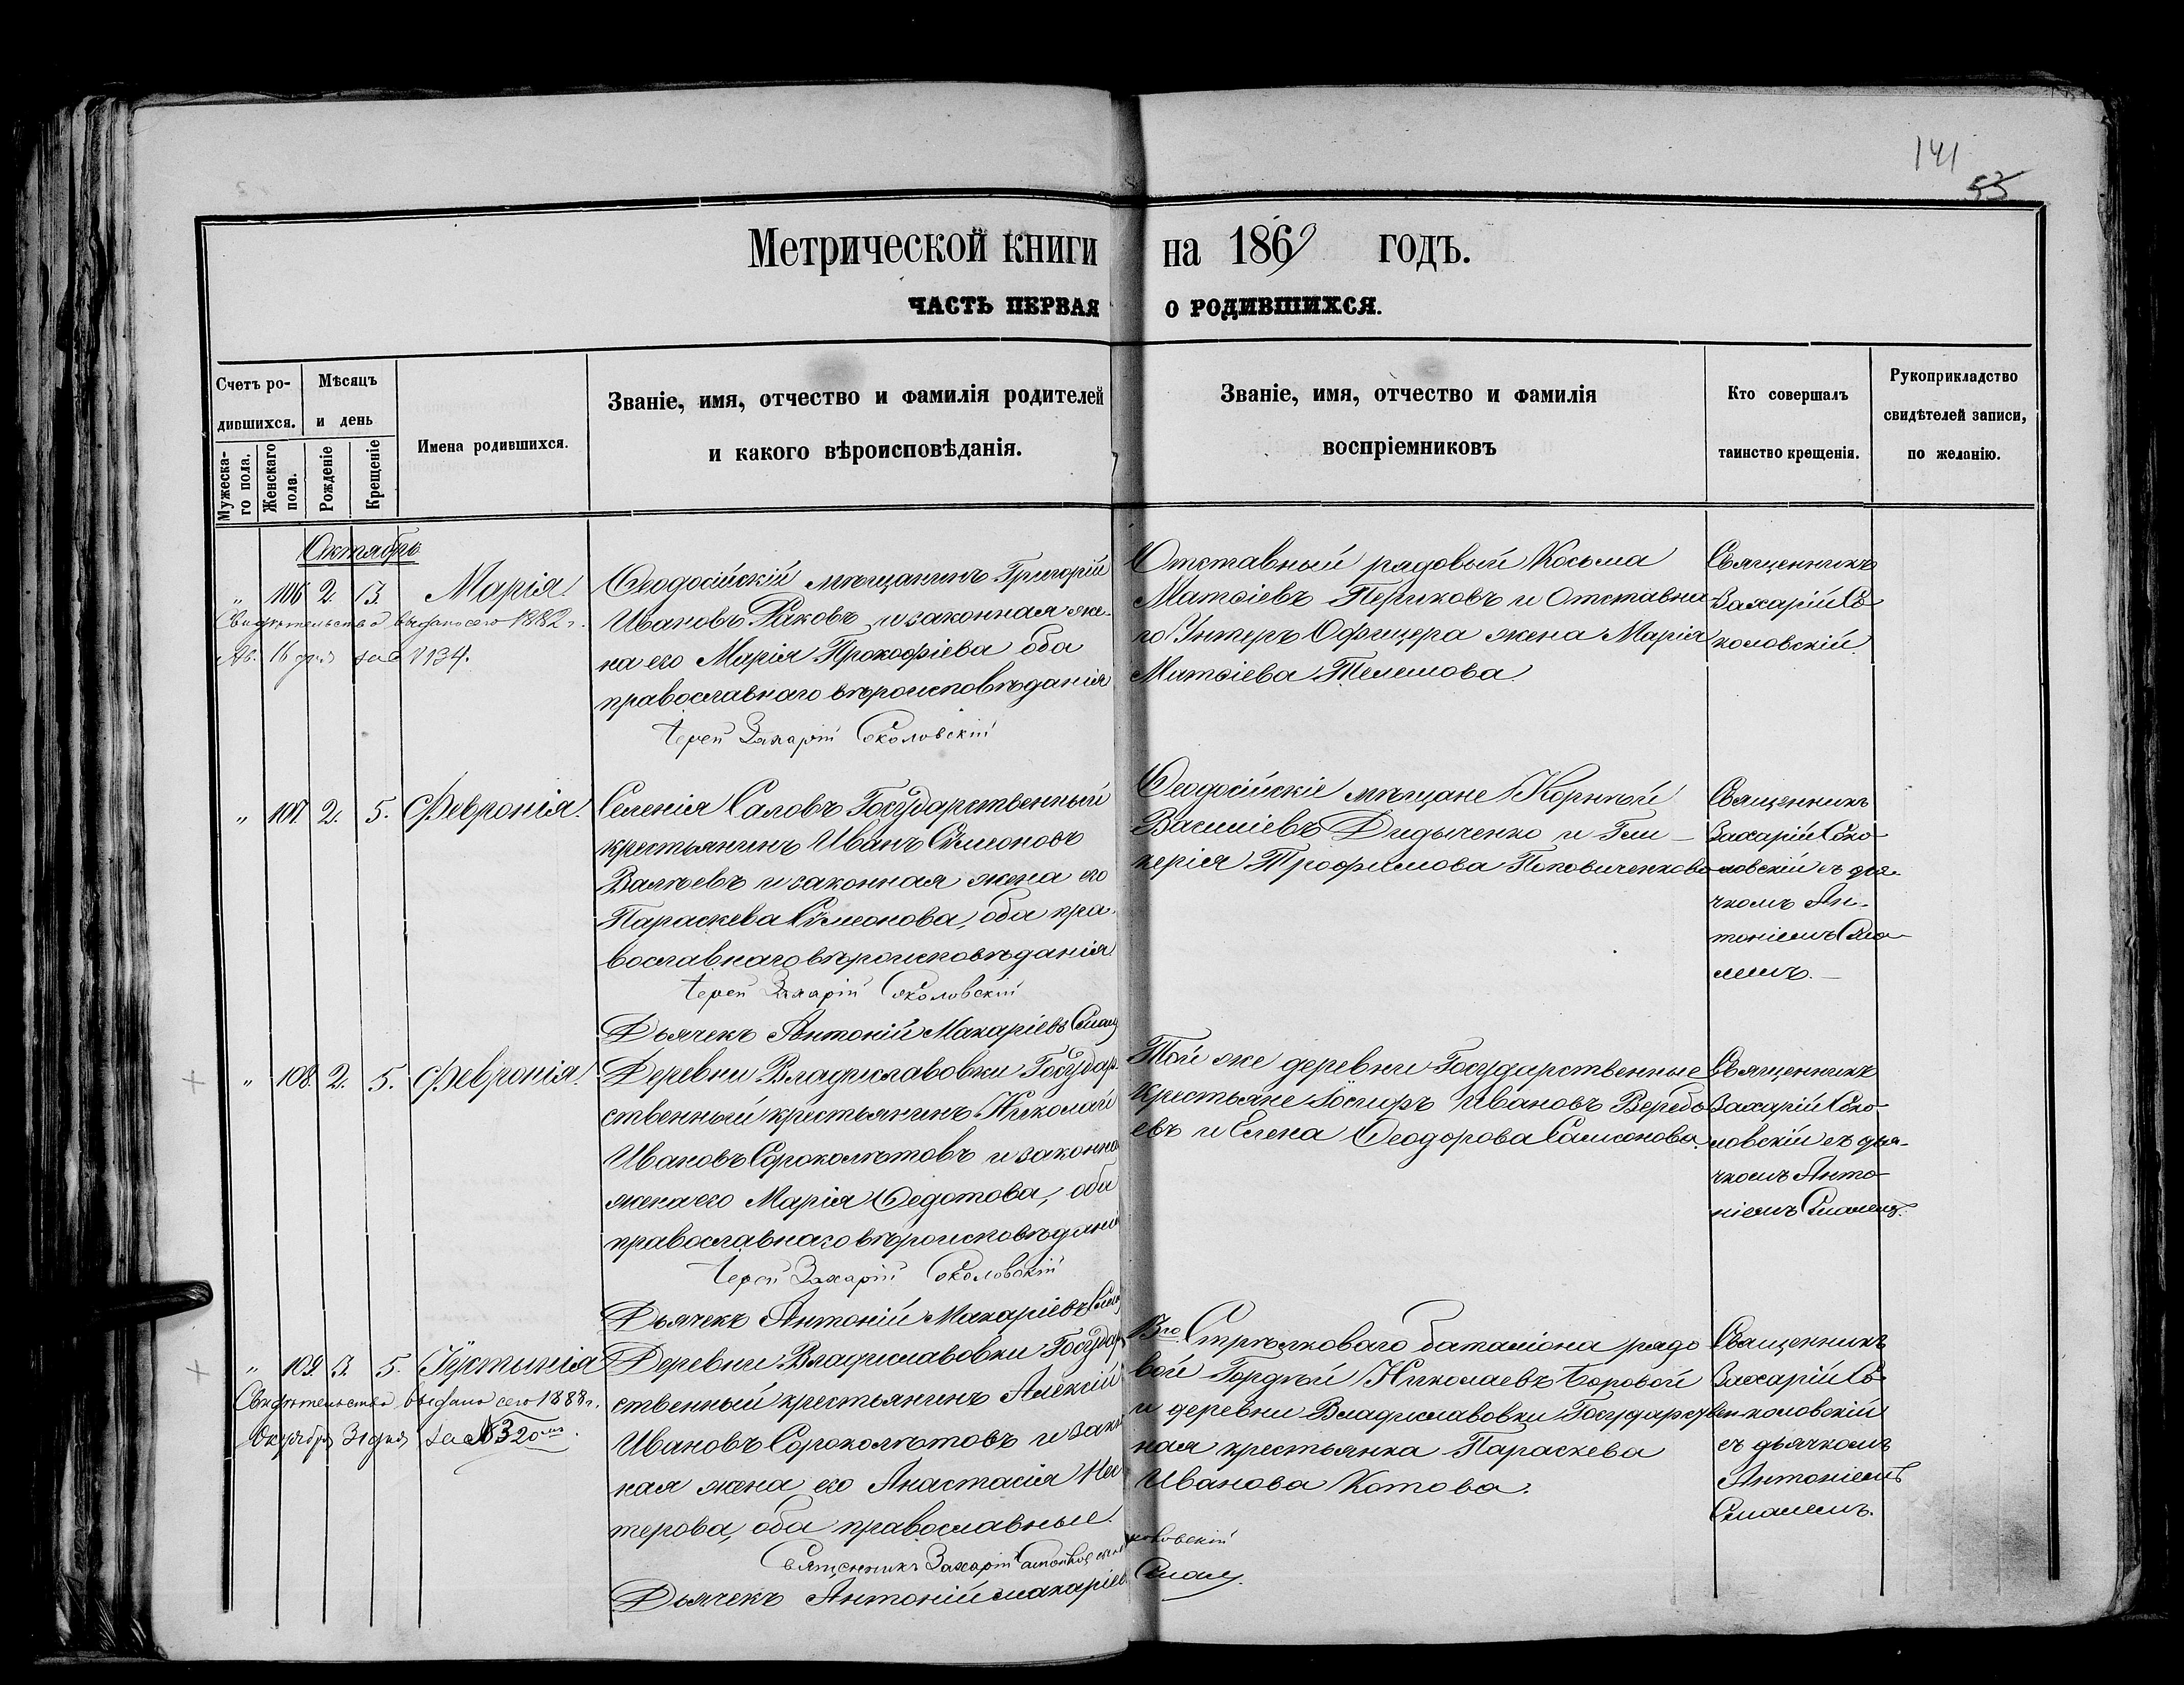 141
53
Метрической книги на 1869 годъ.
ЧАСТЬ ПЕРВАЯ О РОДИВШИХСЯ.
Счетъ ро-
дившихся.
Мужеска-
го пола.
Женскаго
пола.
Мѣсяцъ
и день
Рожденіе
Крещеніе
Имена родившихся.
Званіе, имя, отчество и фамилія родителей
и какого вѣроисповѣданія.
Званіе, имя, отчество и фамилія
воспріемниковъ
Кто совершалъ
таинство крещенія.
Рукоприкладство
свидѣтелей записи,
по желанію.
Октябрь
" 106 2. 3. Марія.
Свидѣтельство выдано сего 1882 г.
Ав. 16 дня за № 134.
Ѳеодосійскій мѣщанинъ Григорій
Ивановъ Раковъ и законная же-
на его Марія Прокофіева оба
православнаго вѣроисповѣданія
Іерей Захарій Соколовскій
Отставный рядовый Косьма
Матѳіевъ Периковъ и Отставна-
го Унтеръ Офицера жена Марія
Матѳіева Телешова
Священникъ
Захарій Со-
коловскій.
" 107. 2. 5. Февронія.
Селенія Саловъ Государственный
крестьянинъ Иванъ Сѵмеоновъ
Валѣевъ и законная жена его
Параскева Сѵмеонова, оба пра-
вославнаго вѣроисповѣданія
Іерей Захарій Соколовскій
Дьячекъ Антоній Макаріевъ
Ѳеодосійскіе мѣщане Корнѣй
Василіевъ Дидыченко и Гли-
керія Трофимова Поповиченкова
Священникъ
Захарій Соко-
ловскій съ дья-
чкомъ Ан-
тоніемъ
" 108. 2. 5. Февронія.
Деревни Владиславовки Государ-
ственный крестьянинъ Николай
Ивановъ Сороколѣтовъ и законна
жена его Марія Ѳедотова, оба
православнаго вѣроисповѣдані
Іерей Захарій Соколовскій
Дьячекъ Антоній Макаріевъ
Той же деревни Государственные
крестьяне Іосифъ Ивановъ Веребь
евъ и Елена Ѳеодорова Самсонова.
Священникъ
Захарій Соко-
ловскій съ дья-
чкомъ Анто-
ніемъ
" 109. 3. 5. Іустинія
Свидѣтельство выдано сего 1888 г.
Октября 31 дня за № 320
Деревни Владиславовки Государ
ственный крестьянинъ Алексій
Ивановъ Сороколѣтовъ и закон
ная жена его Анастасія Нес
терова, оба православные.
Священникъ Захарій
Дьячекъ Антоній Макаріев
Стрѣлковаго баталіона рядо
вой Гордѣй Николаевъ Боровой
и деревни Владиславовки Государствен-
ная крестьянка Параскева
Иванова Котова.
Священникъ
Захарій Со-
коловскій
съ дьячкомъ
Антоніемъ